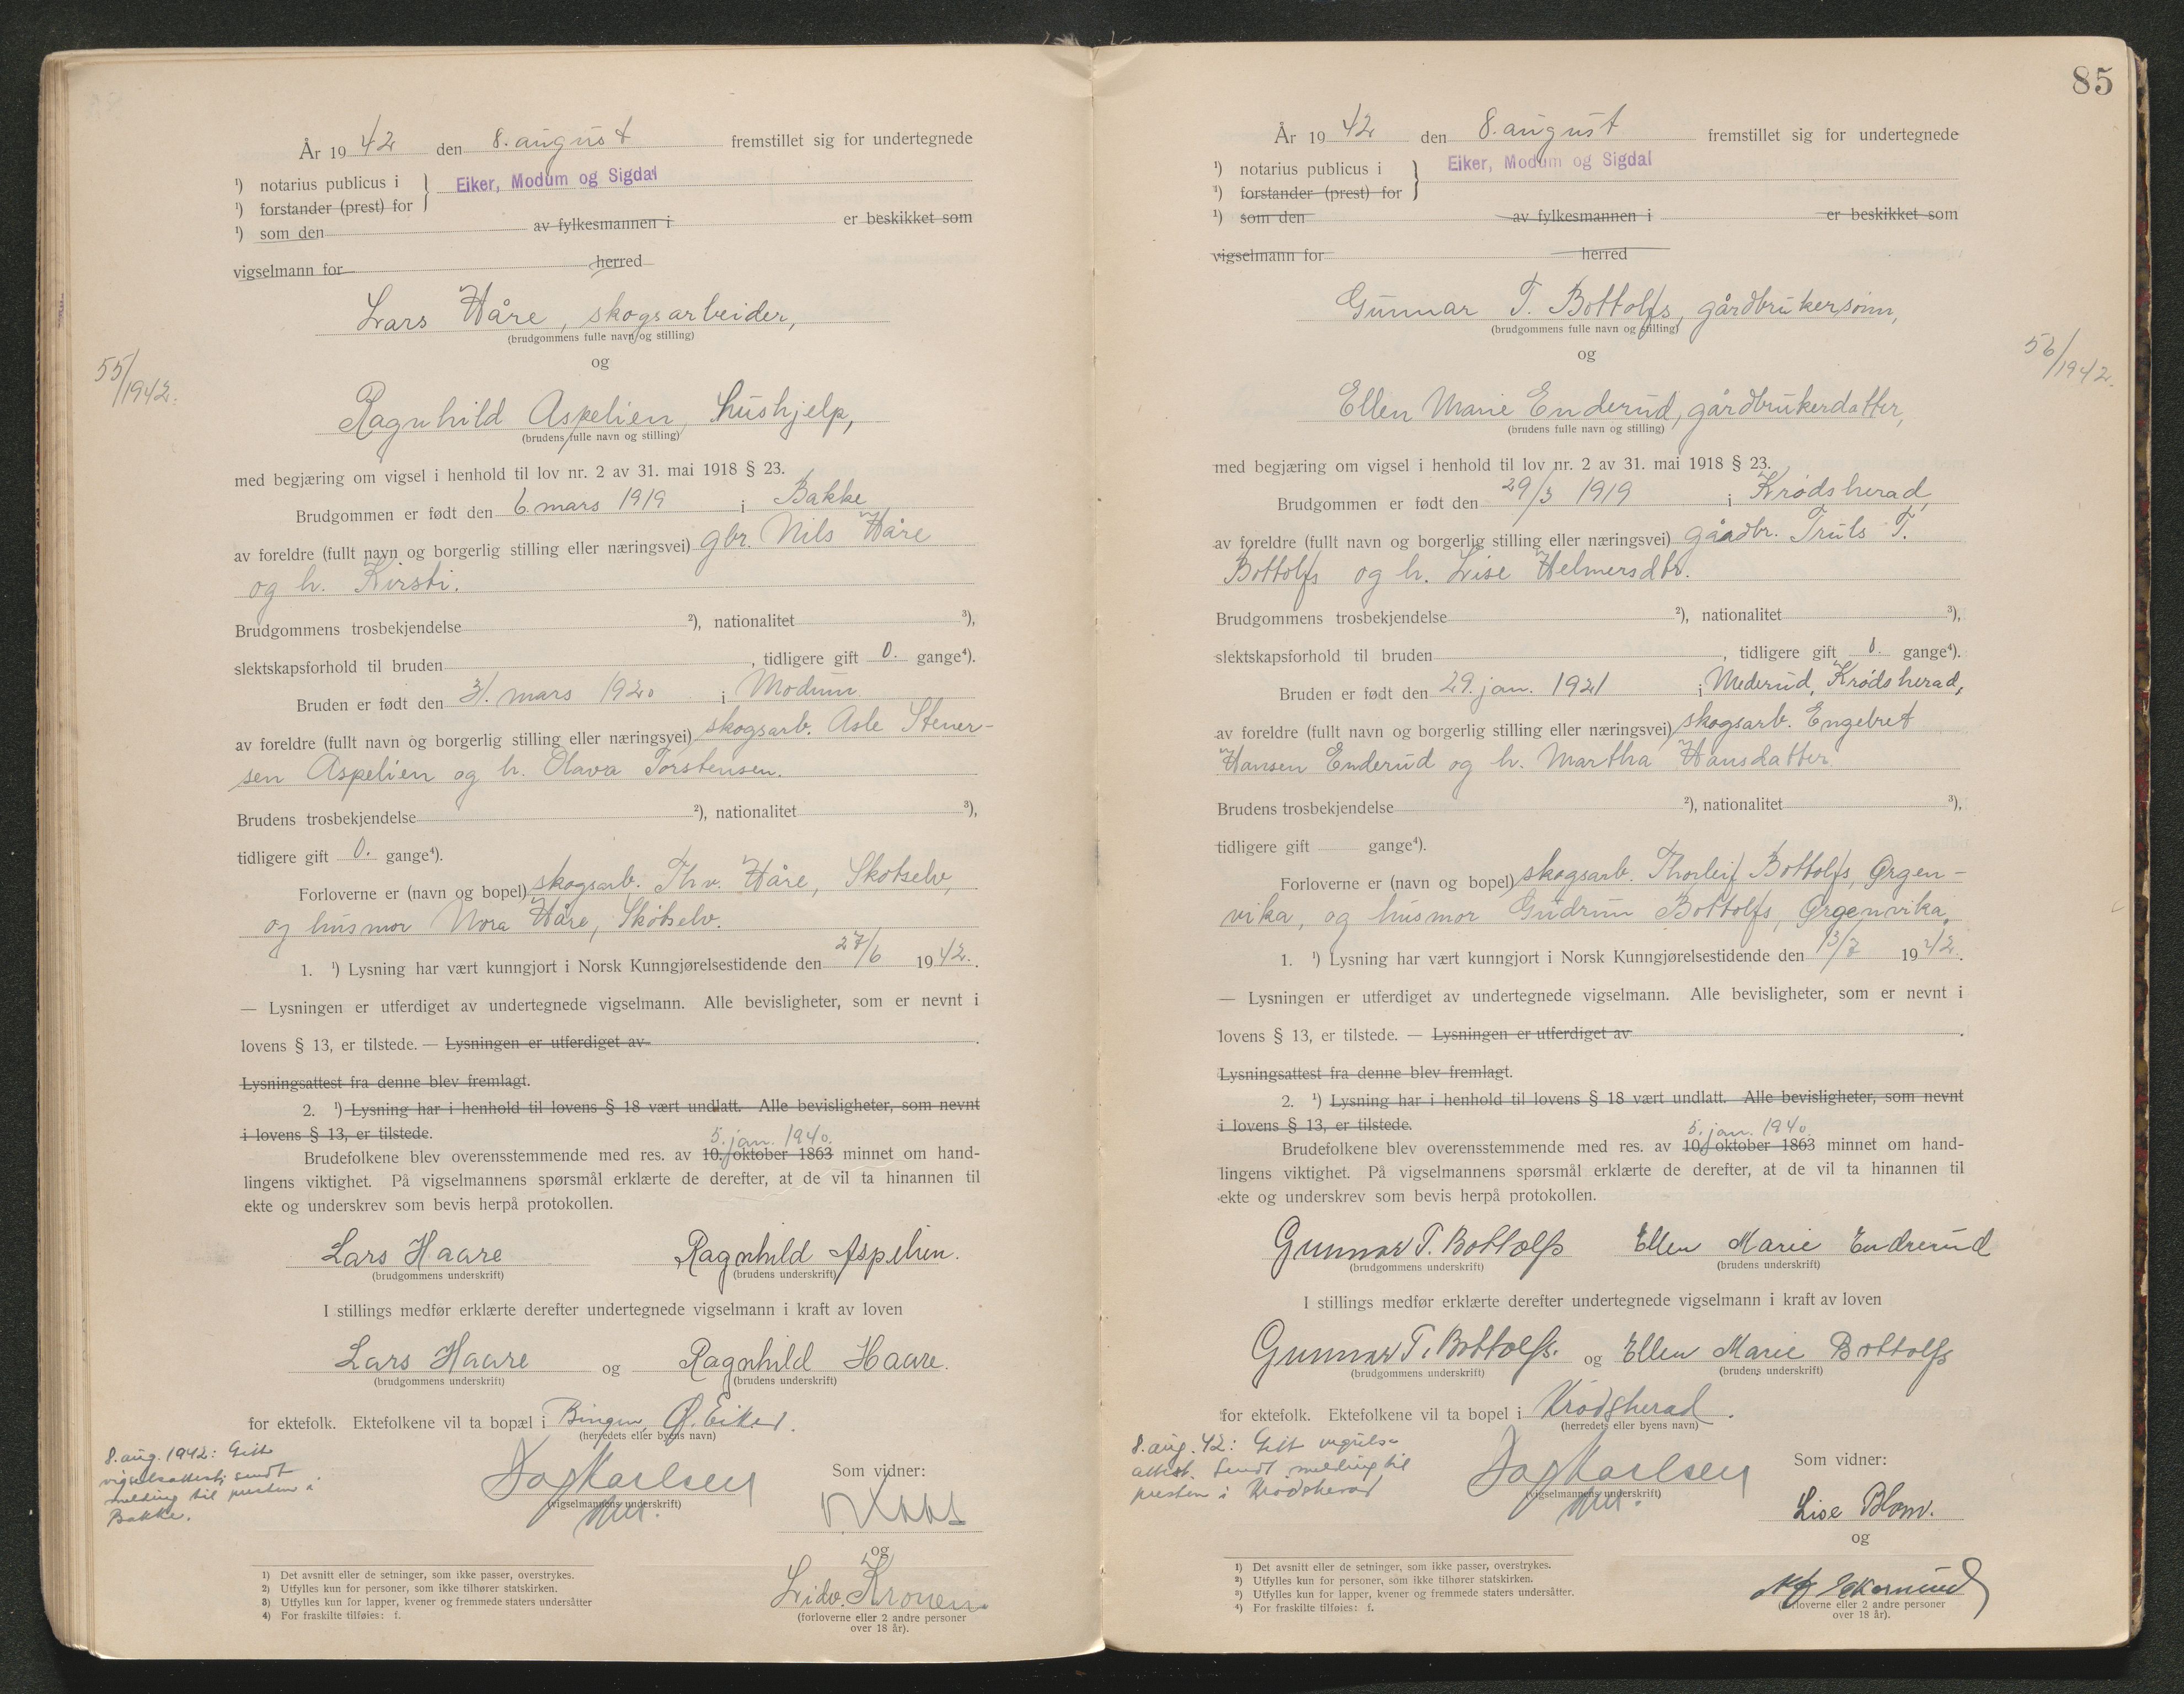 År 19 42 den 8. august fremstillet sig for undertegnede
¹) notarius publicus i } Eiker, Modum og Sigdal
¹) forstander (prest) for
¹) som den av fylkesmannen i er beskikket som
vigselmann for herred
Lars Håre, skogsarbeider,
(brudgommens fulle navn og stilling)
og
55/1942.
Ragnhild Aspelien, hushjelp,
(brudens fulle navn og stilling)
med begjæring om vigsel i henhold til lov nr. 2 av 31. mai 1918 § 23.
Brudgommen er født den 6. mars 1919 i Bakke
av foreldre (fullt navn og borgerlig stilling eller næringsvei) gbr. Nils Håre
og h. Kirsti.
Brudgommens trosbekjendelse ²), nationalitet ³),
slektskapsforhold til bruden , tidligere gift 0. gange⁴).
Bruden er født den 31. mars 1920 i Modum
av foreldre (fullt navn og borgerlig stilling eller næringsvei) skogsarb. Asle Stener-
sen Aspelien og h. Olava Torstensen.
Brudens trosbekjendelse ²), nationalitet ³),
tidligere gift 0. gange⁴).
Forloverne er (navn og bopel) skogsarb. Thv. Håre, Skotselv,
og husmor Nora Håre, Skotselv.
1. ¹) Lysning har vært kunngjort i Norsk Kunngjørelsestidende den 27/6 1942.
— Lysningen er utferdiget av undertegnede vigselmann. Alle bevisligheter, som er nevnt i
lovens § 13, er tilstede. — Lysningen er utferdiget av .
Lysningsattest fra denne blev fremlagt.
2. ¹) Lysning har i henhold til lovens § 18 vært undlatt. Alle bevisligheter, som nevnt
i lovens § 13, er tilstede.
5. jan. 1940.
Brudefolkene blev overensstemmende med res. av 10. oktober 1863 minnet om hand-
lingens viktighet. På vigselmannens spørsmål erklærte de derefter, at de vil ta hinannen til
ekte og underskrev som bevis herpå protokollen.
Lars Haare Ragnhild Aspelien.
(brudgommens underskrift) (brudens underskrift)
I stillings medfør erklærte derefter undertegnede vigselmann i kraft av loven
Lars Haare og Ragnhild Haare.
(brudgommens underskrift) (brudens underskrift)
for ektefolk. Ektefolkene vil ta bopæl i Bingen, Ø. Eiker.
(herredets eller byens navn)
8. aug. 1942: Gitt
vigselsattest; sendt
melding til presten i
Bakke.
Dag Karlsen
(vigselmannens underskrift)
Som vidner:
og
Lidv. Kronen
(forloverne eller 2 andre personer
over 18 år).
1) Det avsnitt eller de setninger, som ikke passer, overstrykes.
2) Utfylles kun for personer, som ikke tilhører statskirken.
3) Utfylles kun for lapper, kvener og fremmede staters undersåtter
4) For fraskilte tilføies: f.
85
År 19 42 den 8. august fremstillet sig for undertegnede
¹) notarius publicus i } Eiker, Modum og Sigdal
³) forstander (prest) for
¹) som den av fylkesmannen i er beskikket som
vigselmann for herred
Gunnar T. Bottolfs, gårdbrukersønn,
(brudgommens fulle navn og stilling)
og
56/1942.
Ellen Marie Enderud, gårdbrukerdatter,
(brudens fulle navn og stilling)
med begjæring om vigsel i henhold til lov nr. 2 av 31. mai 1918 § 23.
Brudgommen er født den 29/3 1919 i Krødsherad
av foreldre (fullt navn og borgerlig stilling eller næringsvei) gårdbr. Truls T.
Bottolfs og h. Lise Helmersdtr.
Brudgommens trosbekjendelse ²), nationalitet ³),
slektskapsforhold til bruden , tidligere gift 0. gange⁴).
Bruden er født den 29. jan. 1921 i Mederud, Krødsherad,
av foreldre (fullt navn og borgerlig stilling eller næringsvei) skogsarb. Engebret
Hansen Enderud og h. Martha Hansdatter.
Brudens trosbekjendelse ²), nationalitet ³),
tidligere gift gange⁴).
Forloverne er (navn og bopel) skogsarb. Thorleif Bottolfs, Ørgen-
vika, og husmor Gudrun Bottolfs, Ørgenvika.
1. ¹) Lysning har vært kunngjort i Norsk Kunngjørelsestidende den 13/7 1942.
— Lysningen er utferdiget av undertegnede vigselmann. Alle bevisligheter, som er nevnt i
lovens § 13, er tilstede. — Lysningen er utferdiget av .
Lysningsattest fra denne blev fremlagt.
2. ¹) Lysning har i henhold til lovens § 18 vært undlatt. Alle bevisligheter, som nevnt
i lovens § 13, er tilstede.
5. jan. 1940.
Brudefolkene blev overensstemmende med res. av 10. oktober 1863 minnet om hand-
lingens viktighet. På vigselmannens spørsmål erklærte de derefter, at de vil ta hinannen til
ekte og underskrev som bevis herpå protokollen.
Gunnar T. Bottolfs Ellen Marie Endrerud
(brudgommens underskrift) (brudens underskrift)
I stillings medfør erklærte derefter undertegnede vigselmann i kraft av loven
Gunnar T. Bottolfs. og Ellen Marie Bottolfs
(brudgommens underskrift) (brudens underskrift)
for ektefolk. Ektefolkene vil ta bopel i Krødsherad.
(herredets eller byens navn)
8. aug. 42: Gitt vigsels
attest. Sendt melding til
presten i Krødsherad
Dag Karlsen
(vigselmannens underskrift)
Som vidner:
Lise Blom.
og
(forloverne eller 2 andre personer
over 18 år).
1) Det avsnitt eller de setninger, som ikke passer, overstrykes.
2) Utfylles kun for personer, som ikke tilhører statskirken.
3) Utfylles kun for lapper, kvener og fremmede staters undersåtter.
4) For fraskilte tilføies: f.